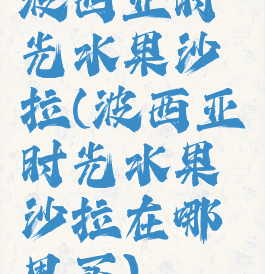 波西亚时
光水果沙
拉(波西亚
时光水果
沙拉在哪
里买)